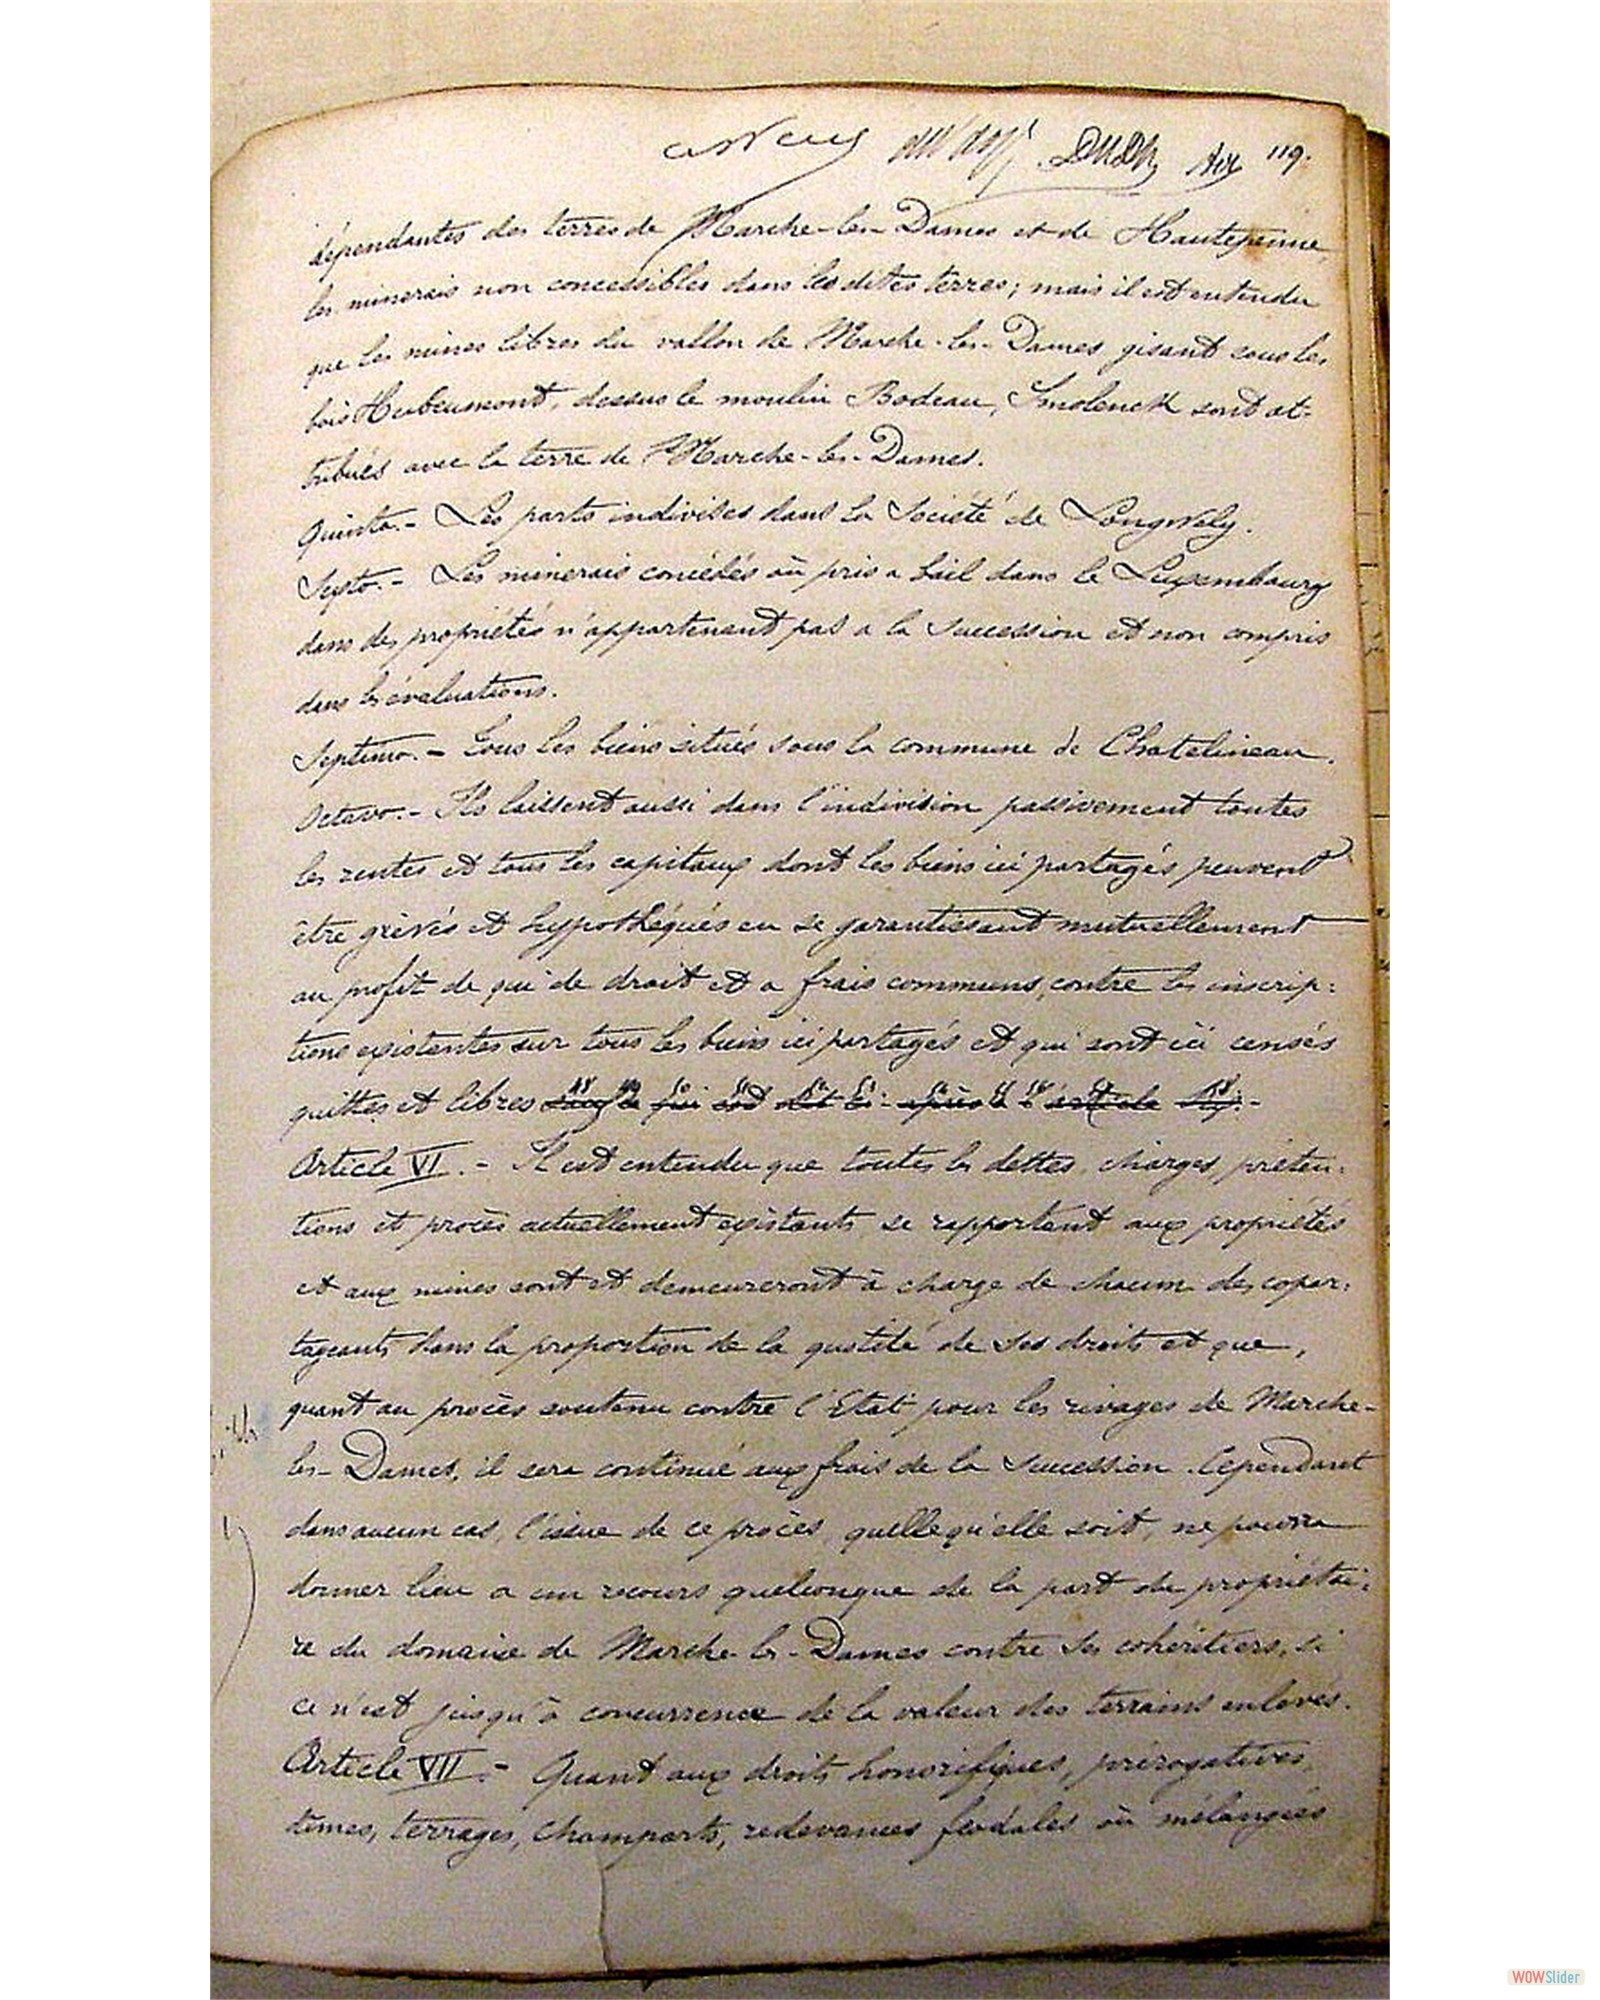 119.
dépendantes des terres de Marche-les-Dames et de Hautepenne,
les minerais non concessibles dans les dites terres; mais il est entendu
que les mines libres du vallon de Marche-les-Dames gisant sous les
bois Hubeumont, dessus le moulin Bodeau, Smolenck sont at-
tribués avec la terre de Marche-les-Dames.
Quinto.- Les parts indivises dans la Société de Longwely.
Sexto.- Les minerais concédés où pris a bail dans le Luxembourg
dans des propriétés n'appartenant pas a la succession et non compris
dans les évaluations.
Septimo.- Tous les biens situés sous la commune de Chatelineau.
Octavo.- Ils laissent aussi dans l'indivision passivement toutes
les rentes et tous les capitaux dont les biens ici partagés peuvent
être grévés et hypothéqués en se garantissant mutuellement
au profit de qui de droit et a frais communs, contre les inscrip:
tions existentes sur tous les biens ici partagés et qui sont ici censés
quittes et libres sauf ce qui est dit ci-après à l'article
Article VI.- Il est entendu que toutes les dettes, charges, préten:
tions et procès actuellement existants se rapportant aux propriétés
et aux mines sont et demeureront à charge de chacun des copar:
tageants dans la proportion de la quotité de ses droits et que,
quant au procès soutenu contre l'Etat pour les rivages de Marche-
les-Dames, il sera continué aux frais de la succession. Cependant
dans aucun cas, l'issue de ce procès, quelle qu'elle soit, ne pourra
donner lieu a un recours quelconque de la part du propriétai:
re du domaine de Marche-les-Dames contre ses cohéritiers, si
ce n'est jusqu'à concurrence de la valeur des terrains enlevés.
Article VII.- Quant aux droits honorifiques, prérogatives,
dîmes, terrages, champarts, redevances féodales où mélangées
WOWSlider